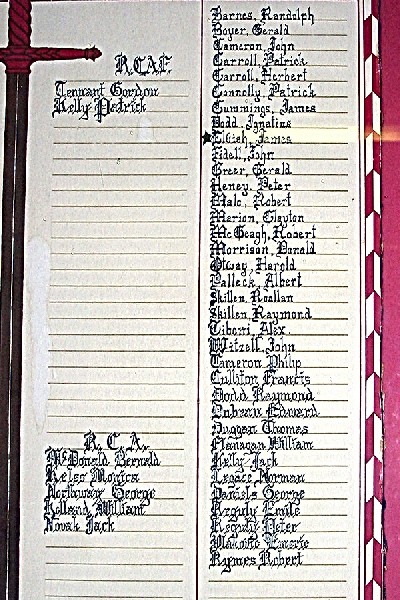 R.C.A.F.
Tennant Gordon
Kelly Patrick
R.C.A.
McDonald Bernald
Kelso Monica
Northway George
Holland William
Novak Jack
Barnes, Randolph
Boyer, Gerald
Cameron, John
Carroll, Patrick
Carroll, Herbert
Connolly, Patrick
Cummings, James
Dodd, Ignatius
James
Fidell, John
Greer, Gerald
Heney, Peter
Malo, Robert
Marion, Clayton
McGeagh, Robert
Morrison, Donald
Otway, Harold
Palleck, Albert
Skillen, Roollan
Skillen, Raymond
Tiboni, Alex.
Witzell, John
Cameron Philip
Culliton Francis
Dodd Raymond
Edward
Duggan Thomas
Flanagan William
Kelly Jack
Legace Norman
Daniels George
Emile
Peter
Rymes Robert